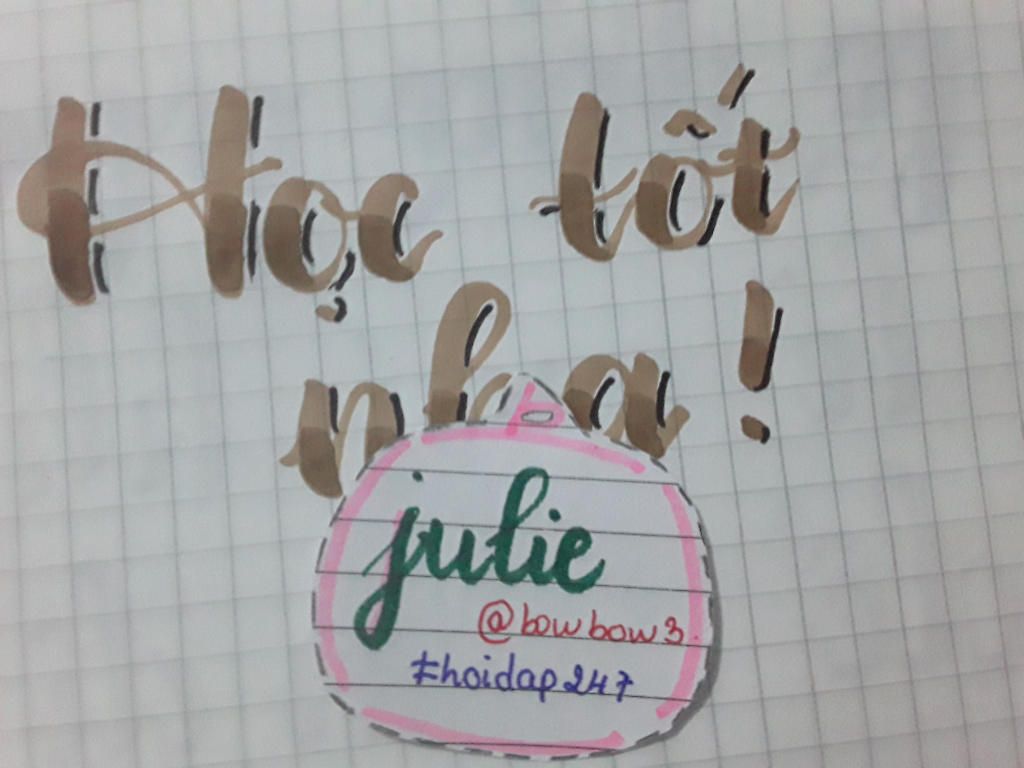 Học tốt
nha!
julie
@bowbow3
#hoidap247